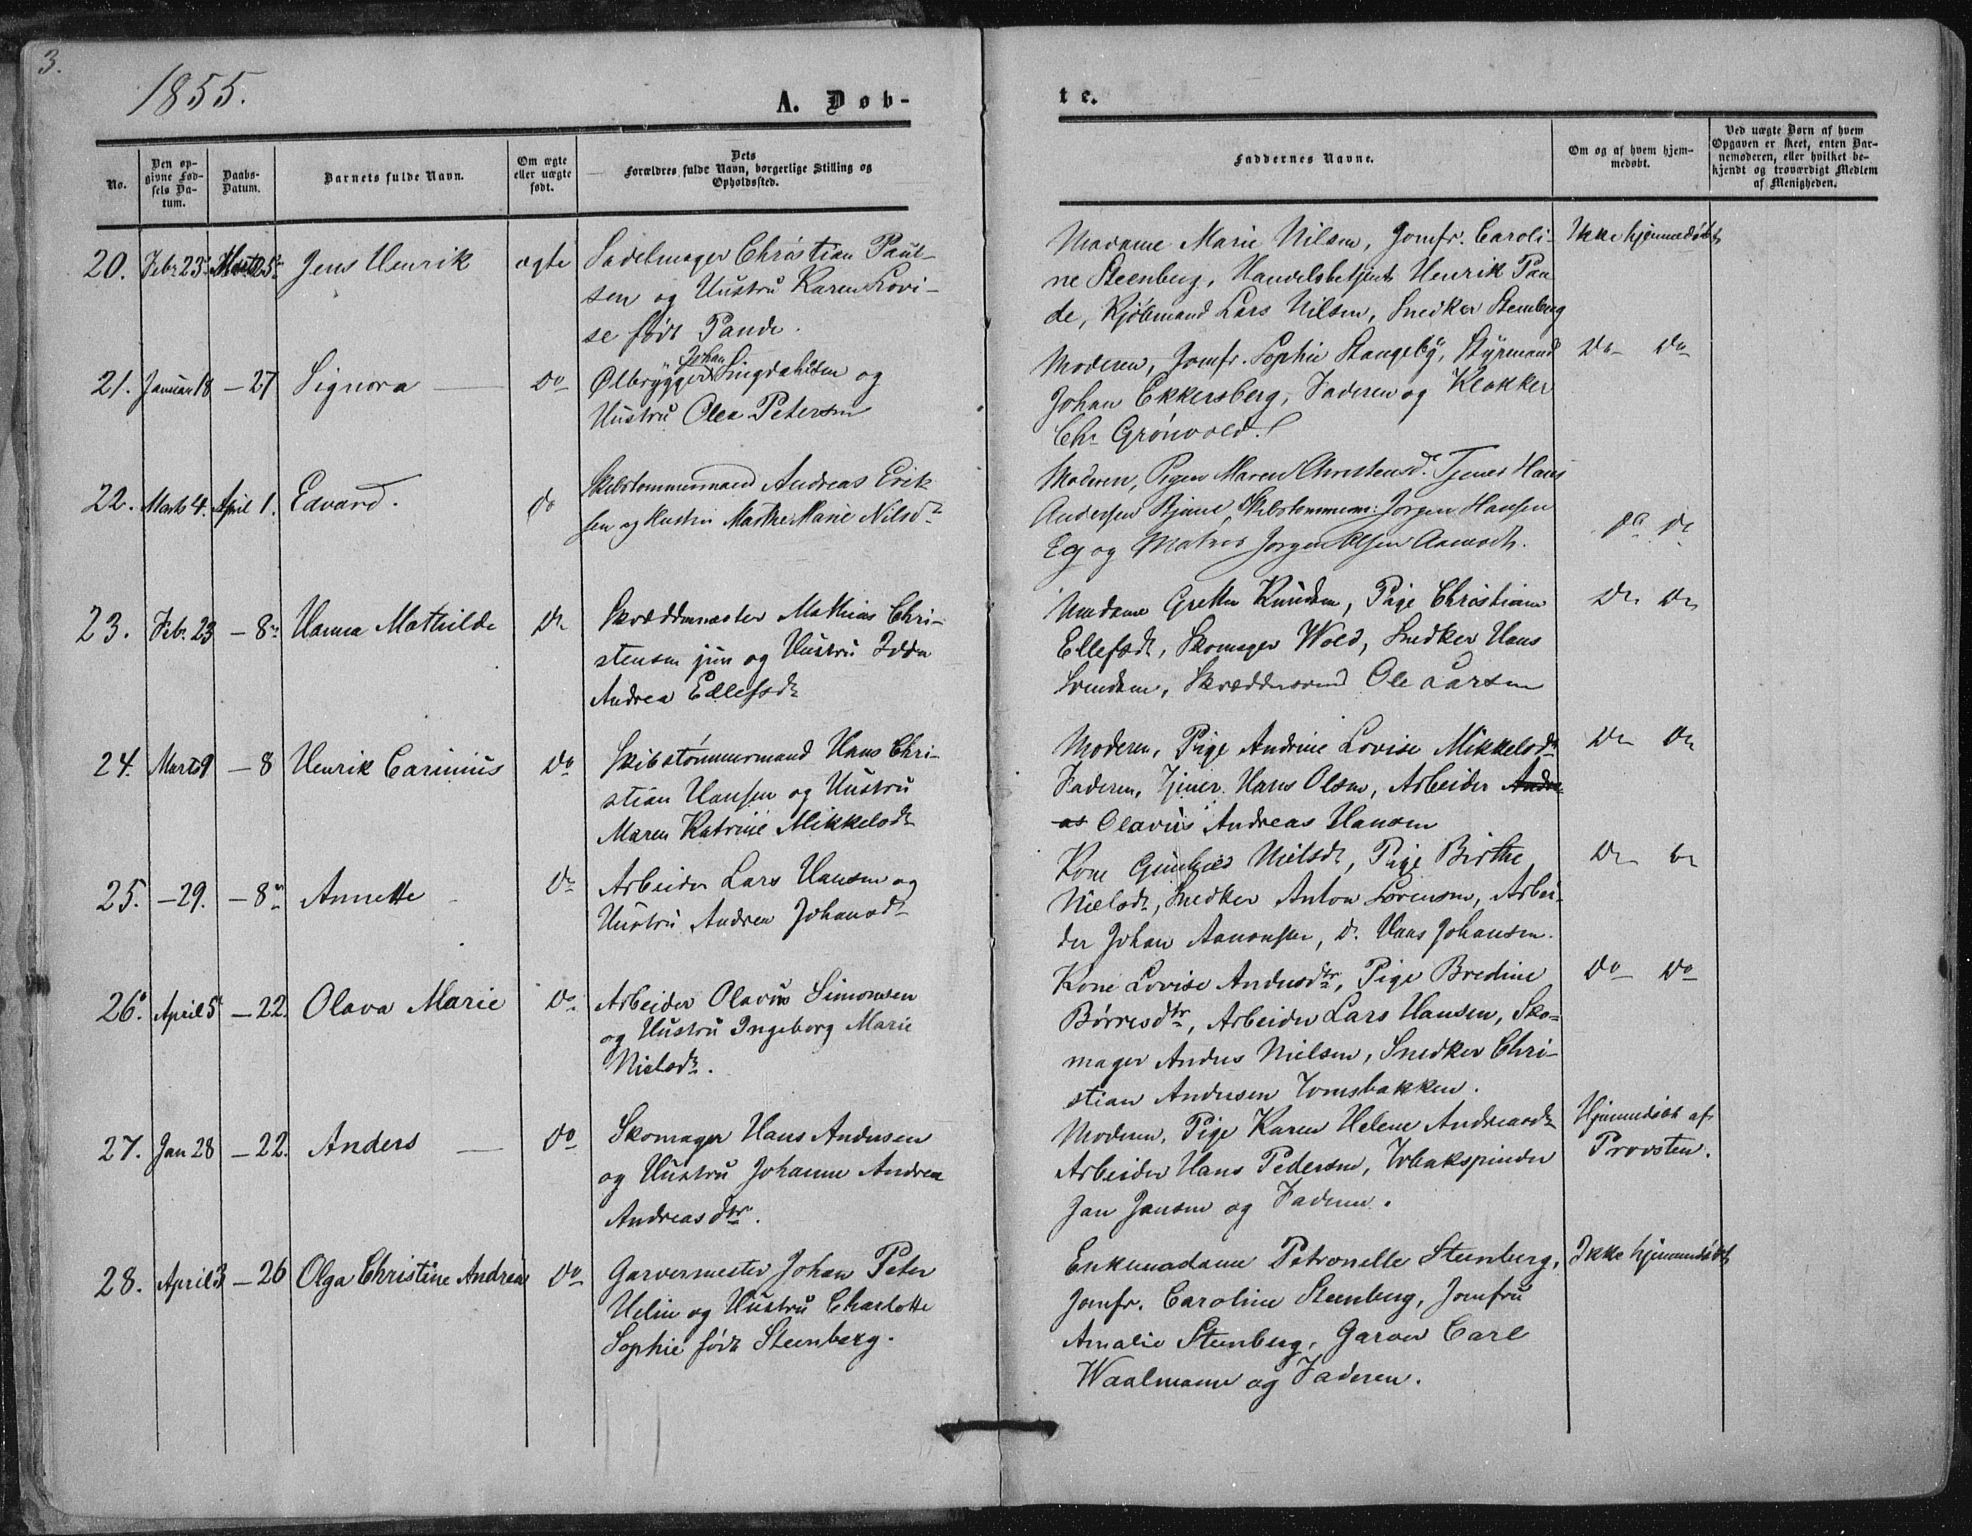 3.
1855.
A. Døb-
te.
No.
Den op-
givne Fød-
sels Da-
tum.
Daabs-
Datum.
Barnets fulde Navn.
Om ægte
eller uægte
født.
Dets
Forældres fulde Navn, borgerlige Stilling og
Opholdssted.
Faddernes Navne.
Om og af hvem hjem-
medøbt.
Ved uægte Børn af hvem
Opgaven er skeet, enten Bar-
nemoderen, eller hvilket be-
kjendt og troværdigt Medlem
af Menigheden.
20. Febr 25 Marts 25 Jens Henrik ægte
Sadelmager Christian Paul-
sen og Hustru Karen Lovi-
se født Paude.
Madame Marie Nilsen, Jomfr. Caroli-
ne Steenberg, Handelsbetjent Henrik Pau-
de, Kjøbmand Lars Nilsen, Snedker Stenberg
Ikke hjemmedøbt
21. Januar 18 - 27 Signora Do
Johan
Ølbrygger Singdahlsen og
Hustru Olea Petersen
Moderen, Jomfr. Sophie Stangeby, Styrmand
Johan Ekkersberg, Faderen og Klokker
Chr Grønvold.
Do Do
22. Marts 4. April 1. Edvard. do
Skibstømmermand Andreas Erik
sen og Hustru Marthe Marie Nilsdr
Moderen, Pigen Maren Christensdr. Tjener Hans
Andersen Skibstømmerm: Jørgen Hansen
Eg og Matros Jørgen Olsen Aamodt.
Do Do
23. Febr. 23 - 8de Hanna Mathilde Do
Skræddermester Mathias Chri-
stensen jun og Hustru Idda
Andrea Ellefsdr
Madame Grethe Knudsen, Pige Christiane
Ellefsdr, Skomager Wold, Snedker Hans
Svendsen, Skræddersvend Ole Larsen
Do Do
24. Marts 9 - 8 Henrik Carinius Do
Skibstømmermand Hans Chri-
stian Hansen og Hustru
Maren Katrine Mikkelsdr
Moderen, Pige Andrine Lovise Mikkelsdr
Faderen, Tjener Hans Olsen, Arbeider Andre
as Olavus Andreas Hansen
Do Do
25. - 29. - 8de Annette Do
Arbeider Lars Hansen og
Hustru Andrea Johansdr
Kone Nielsdr, Pige Birthe
Nielsdr, Snedker Anton Sørensen, Arbei-
der Johan Aanonsen, Do. Hans Johansen.
Do Do
26. April 5 - 22. Olava Marie Do
Arbeider Olavus Simonsen
og Hustru Ingeborg Marie
Nielsdr.
Kone Lovise Andersdtr, Pige Bredine
Børresdtr, Arbeider Lars Hansen, Sko-
mager Anders Nielsen, Snedker Chri-
stian Andersen Tomsbakken.
Do Do
27. Jan 28 - 22. Anders Do
Skomager Hans Andersen
og Hustru Johanne Andrea
Andreasdtr.
Moderen, Pige Karen Helene Andreasdr
Arbeider Hans Pedersen, Tobakspinder
Jan Jansen og Faderen.
Hjemmedøbt af
Provsten.
28. April 3 - 26 Olga Christine Andrea Do
Garvermester Johan Peter
Helin og Hustru Charlotte
Sophie født Steenberg.
Enkemadame Petronelle Steenberg,
Jomfr. Caroline Steenberg, Jomfru
Amalie Steenberg, Garver Carl
Waalmann og Faderen.
Ikke hjemmedøbt